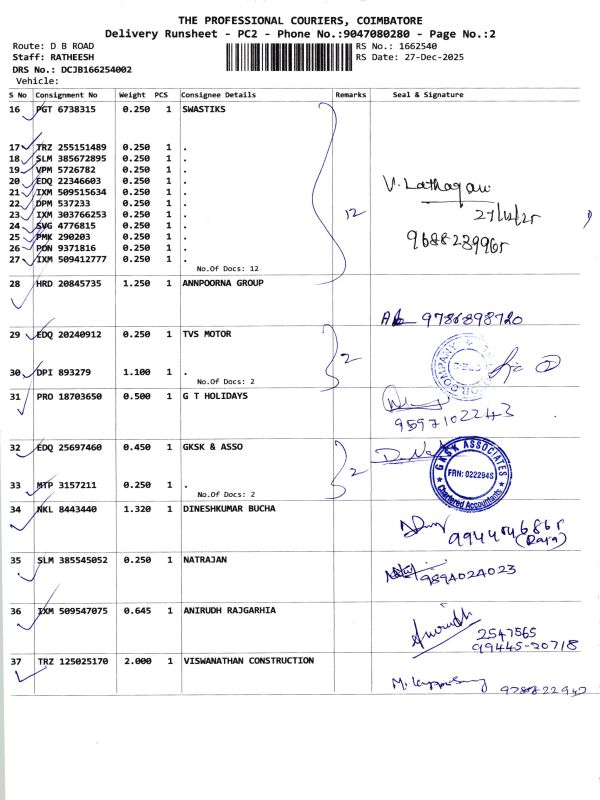 THE PROFESSIONAL COURIERS, COIMBATORE
Delivery Runsheet - PC2 - Phone No.:9047080280 - Page No.:2
Route: D B ROAD
RS No.: 1662540
Staff: RATHEESH
RS Date: 27-Dec-2025
DRS No.: DCJB166254002
Vehicle:
S No Consignment No Weight PCS Consignee Details Remarks Seal & Signature
16 PGT 6738315 0.250 1 SWASTIKS
17 TRZ 255151489 0.250 1 .
18 SLM 385672895 0.250 1 .
19 VPM 5726782 0.250 1 .
20 EDQ 22346603 0.250 1 .
21 IXM 509515634 0.250 1 .
22 DPM 537233 0.250 1 .
23 IXM 303766253 0.250 1 .
24 SVG 4776815 0.250 1 .
25 PMK 290203 0.250 1 .
26 PON 9371816 0.250 1 .
27 IXM 509412777 0.250 1 .
No.Of Docs: 12
12
27/12/25
28 HRD 20845735 1.250 1 ANNPOORNA GROUP
9786898720
29 EDQ 20240912 0.250 1 TVS MOTOR
30 DPI 893279 1.100 1 .
No.Of Docs: 2
2
31 PRO 18703650 0.500 1 G T HOLIDAYS
9597102243
32 EDQ 25697460 0.450 1 GKSK & ASSO
33 MTP 3157211 0.250 1 .
No.Of Docs: 2
2
GKSK ASSOCIATES
FRN: 022294S
Chartered Accountants
34 NKL 8443440 1.320 1 DINESHKUMAR BUCHA
(Raja)
35 SLM 385545052 0.250 1 NATRAJAN
9894024023
36 IXM 509547075 0.645 1 ANIRUDH RAJGARHIA
Anirudh
2547565
99445-20718
37 TRZ 125025170 2.000 1 VISWANATHAN CONSTRUCTION